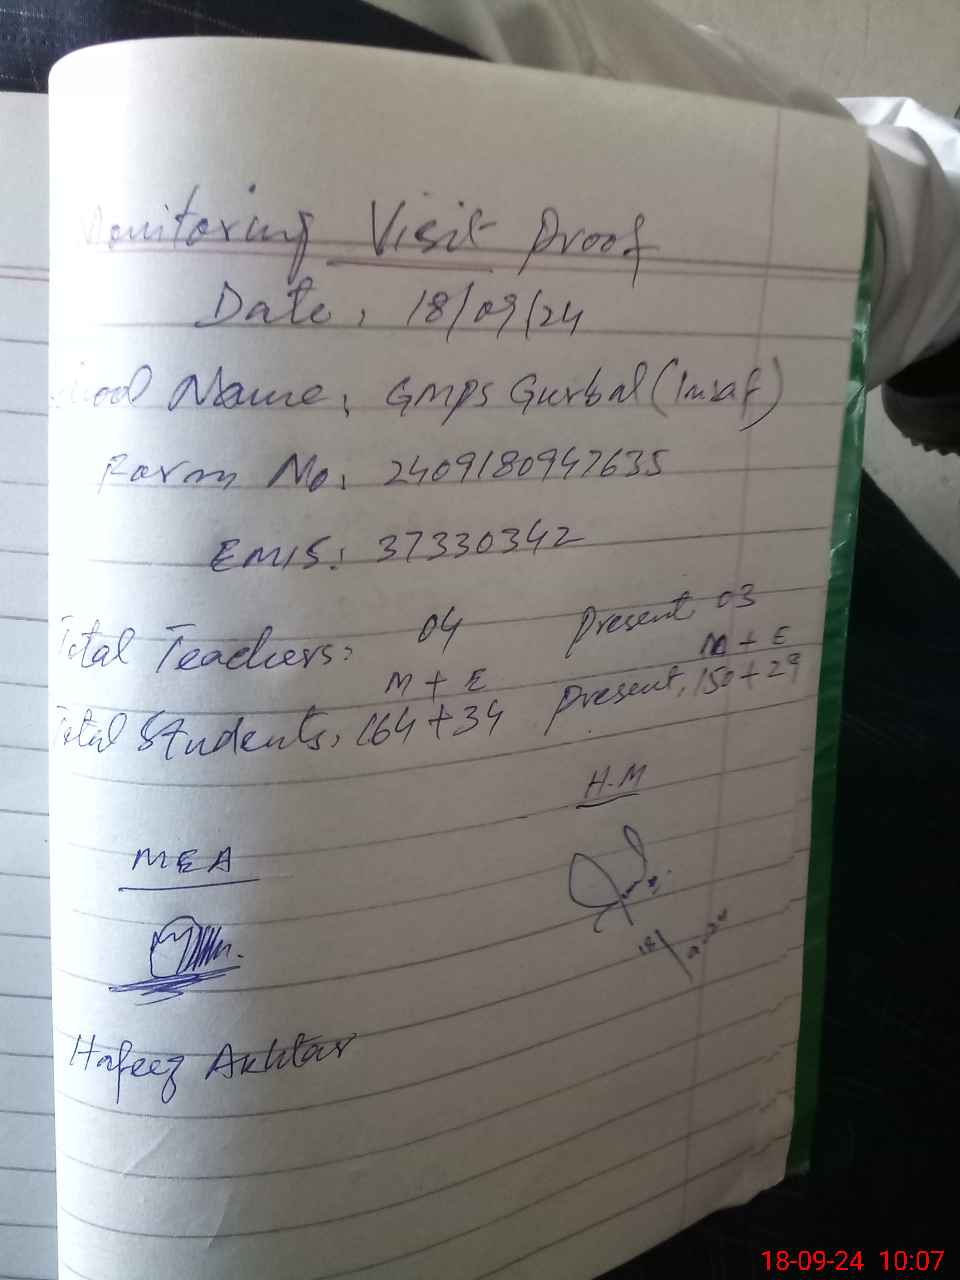 Monitoring Visit Proof
Date: 18/09/24
School Name: GMPS Gurbal (Insaf)
Form No: 2409180947635
EMIS: 37330342
Total Teachers: 04 Present 03
M + E M + E
Total Students: 164+34 Present: 150+29
H.M
MEA
Hafeez Akhtar
18-09-24 10:07